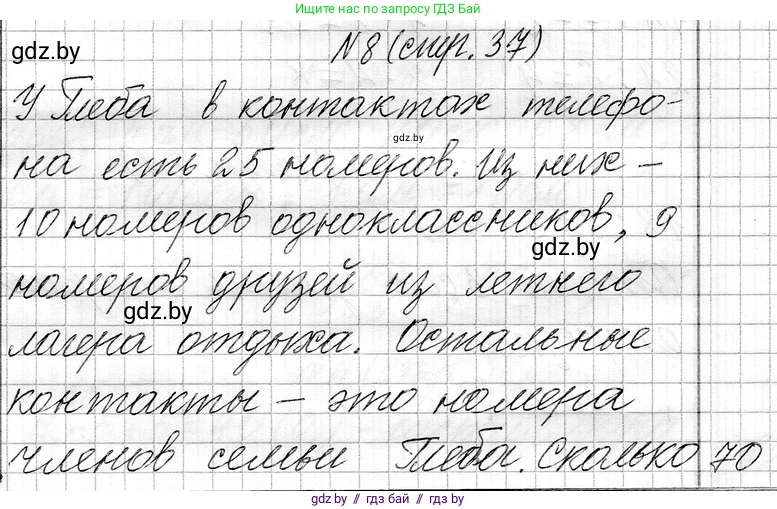 Ищите нас по запросу "GDZ BY"
gdz.by
№8 (стр. 37)
У Глеба в контактах телефо-
gdz.by
на есть 25 номеров. Из них -
10 номеров одноклассников, 9
gdz.by
номеров друзей из летнего
gdz.by
лагера отдыха. Остальные
контакты - это номера
членов семьи Глеба. Сколько 70
gdz.by // гдз бай // гдз by